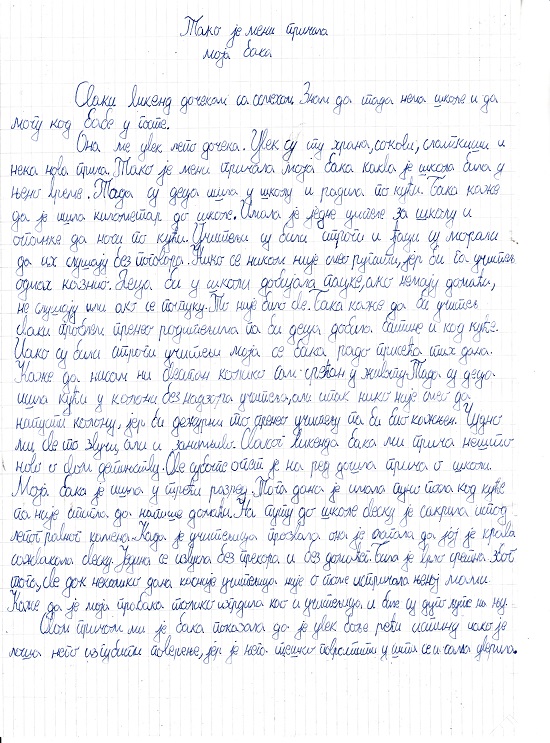 Тако је мени причала
моја бака
Сваки викенд дочекам са осмехом. Знам да тада нема школе и да
могу код бабе у госте.
Она ме увек лепо дочека. Увек су ту храна, сокови, слаткиши и
нека нова прича. Тако је мени причала моја бака каква је школа била у
њено време. Тада су деца ишла у школу и радила по кући. Бака каже
да је ишла километар до школе. Имала је једне ципеле за школу и
опанке да носи по кући. Учитељи су били строги и ђаци су морали
да их слушају без поговора. Нико се ником није смео ругати, јер би га учитељ
одмах казнио. Деца би у школи добијала пацке, ако немају домаћи,
не слушају или ако се потуку. То није било све. Бака каже да би учитељ
сваки проблем пренео родитељима па би деца добила батине и код куће.
Иако су били строги учитељи моја се бака радо присећа тих дана.
Каже да нисам ни свестан колико сам срећан у животу. Тада су деца
ишла кући у колони без надзора учитеља, али ипак нико није смео да
напусти колону, јер би дежурни то пренео учитељу па би био кажњен. Чудно
ми све то звучи, али и занимљиво. Сваког викенда бака ми прича нешто
ново о свом детињству. Ове суботе опет је на ред дошла прича о школи.
Моја бака је ишла у трећи разред. Тога дана је имала пуно посла код куће
па није стигла да напише домаћи. На путу до школе свеску је сакрила испод
лепог равног камена. Када је учитељица прозвала она је слагала да јој је крава
сажвакала свеску. Једина се извукла без прекора и без домаћег. Била је врло сретна. Због
тога, све док неколико дана касније учитељица није о томе испричала њеној мами.
Каже да је моја прабака толико изгрдила као и учитељица и биле су дуго љуте на њу.
Овом причом ми је бака показала да је увек боље рећи истину иако је
лоша него изгубити поверење, јер је њега тешко повратити у шта се и сама уверила.